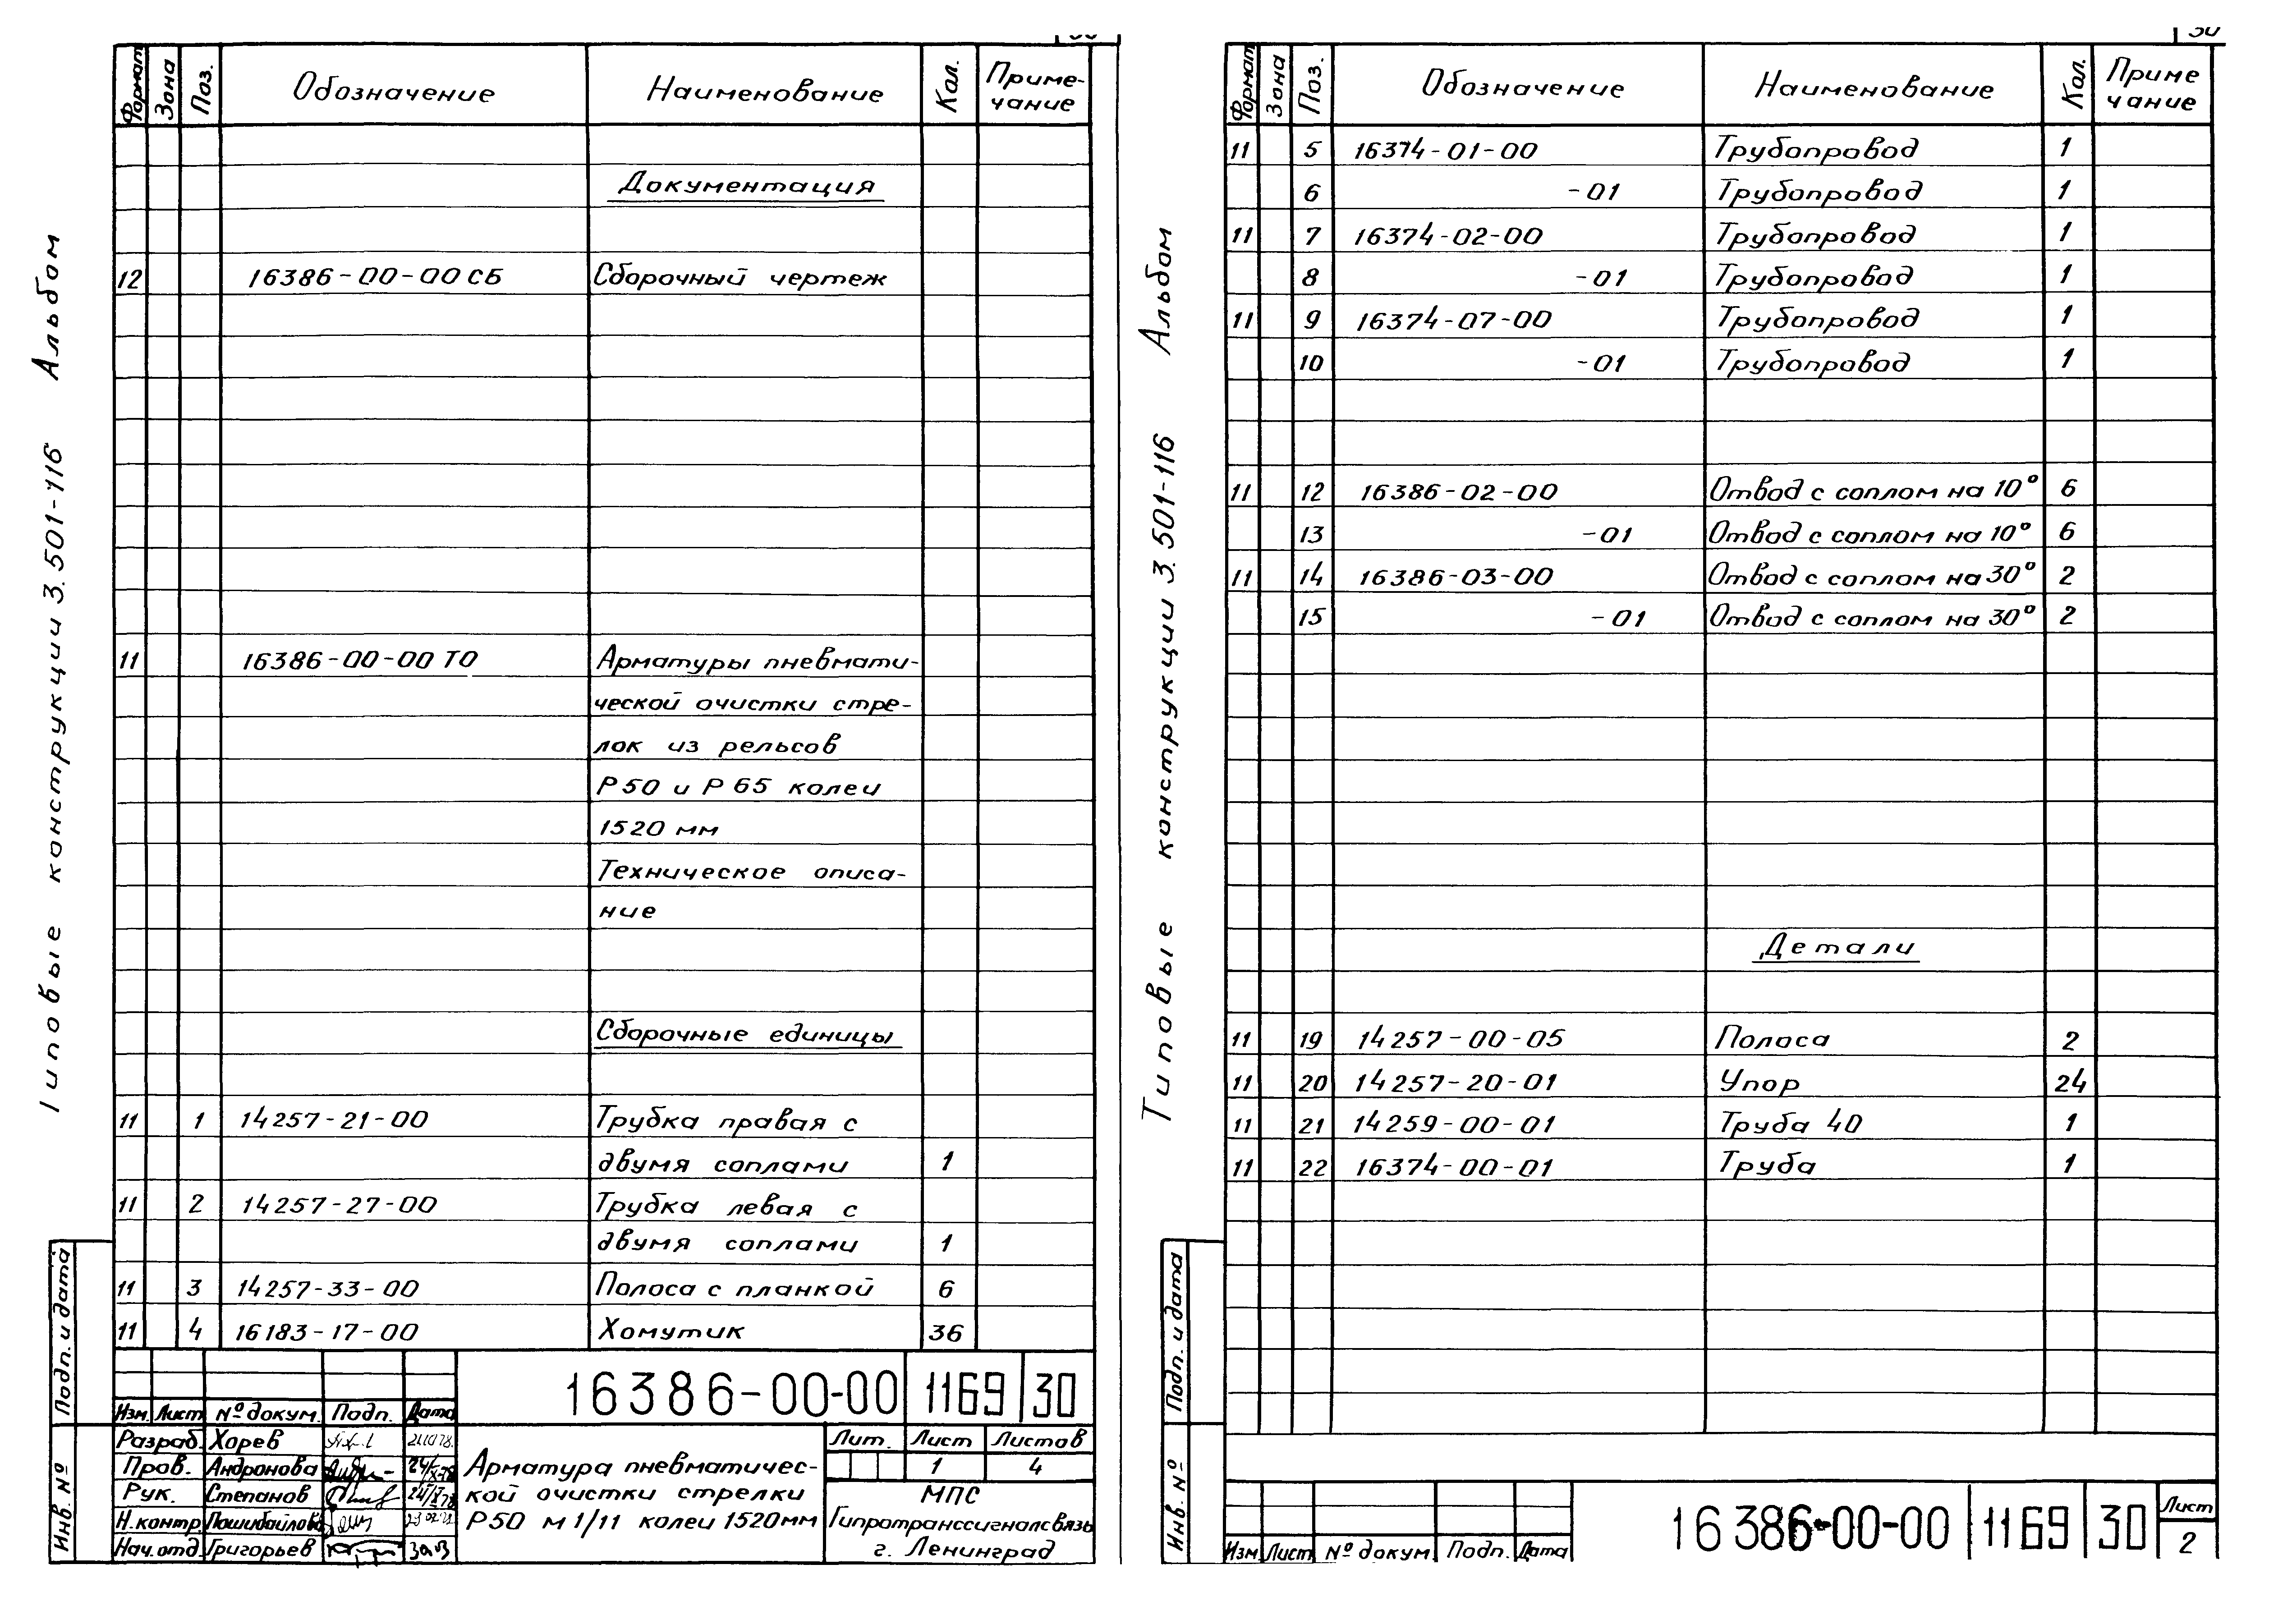 Формат Зона Поз. Обозначение Наименование Кол. Приме-
чание
Документация
12 16386-00-00 СБ Сборочный чертеж
11 16386-00-00 ТО Арматуры пневмати-
ческой очистки стре-
лок из рельсов
Р50 и Р65 колеи
1520 мм
Техническое описа-
ние
Сборочные единицы
11 1 14257-21-00 Трубка правая с
двумя соплами 1
11 2 14257-27-00 Трубка левая с
двумя соплами 1
11 3 14257-33-00 Полоса с планкой 6
11 4 16183-17-00 Хомутик 36
16386-00-00 1169 30
Изм. Лист № докум. Подп. Дата
Разраб. Хорев
Пров. Андронова
Рук. Степанов
Н.контр.
Нач.отд. Григорьев
Арматура пневматичес-
кой очистки стрелки
Р50 м 1/11 колеи 1520мм
Лит. Лист Листов
1 4
МПС
Гипротранссигналсвязь
г. Ленинград
Типовые конструкции 3.501-116 Альбом
Подп. и дата
Инв. №
30
Формат Зона Поз. Обозначение Наименование Кол. Приме
чание
11 5 16374-01-00 Трубопровод 1
6 -01 Трубопровод 1
11 7 16374-02-00 Трубопровод 1
8 -01 Трубопровод 1
11 9 16374-07-00 Трубопровод 1
10 -01 Трубопровод 1
11 12 16386-02-00 Отвод с соплом на 10° 6
13 -01 Отвод с соплом на 10° 6
11 14 16386-03-00 Отвод с соплом на 30° 2
15 -01 Отвод с соплом на 30° 2
Детали
11 19 14257-00-05 Полоса 2
11 20 14257-20-01 Упор 24
11 21 14259-00-01 Труба 40 1
11 22 16374-00-01 Труба 1
Изм Лист № докум. Подп. Дата
16386-00-00 1169 30 Лист
2
Типовые конструкции 3.501-116 Альбом
Подп. и дата
Инв. №